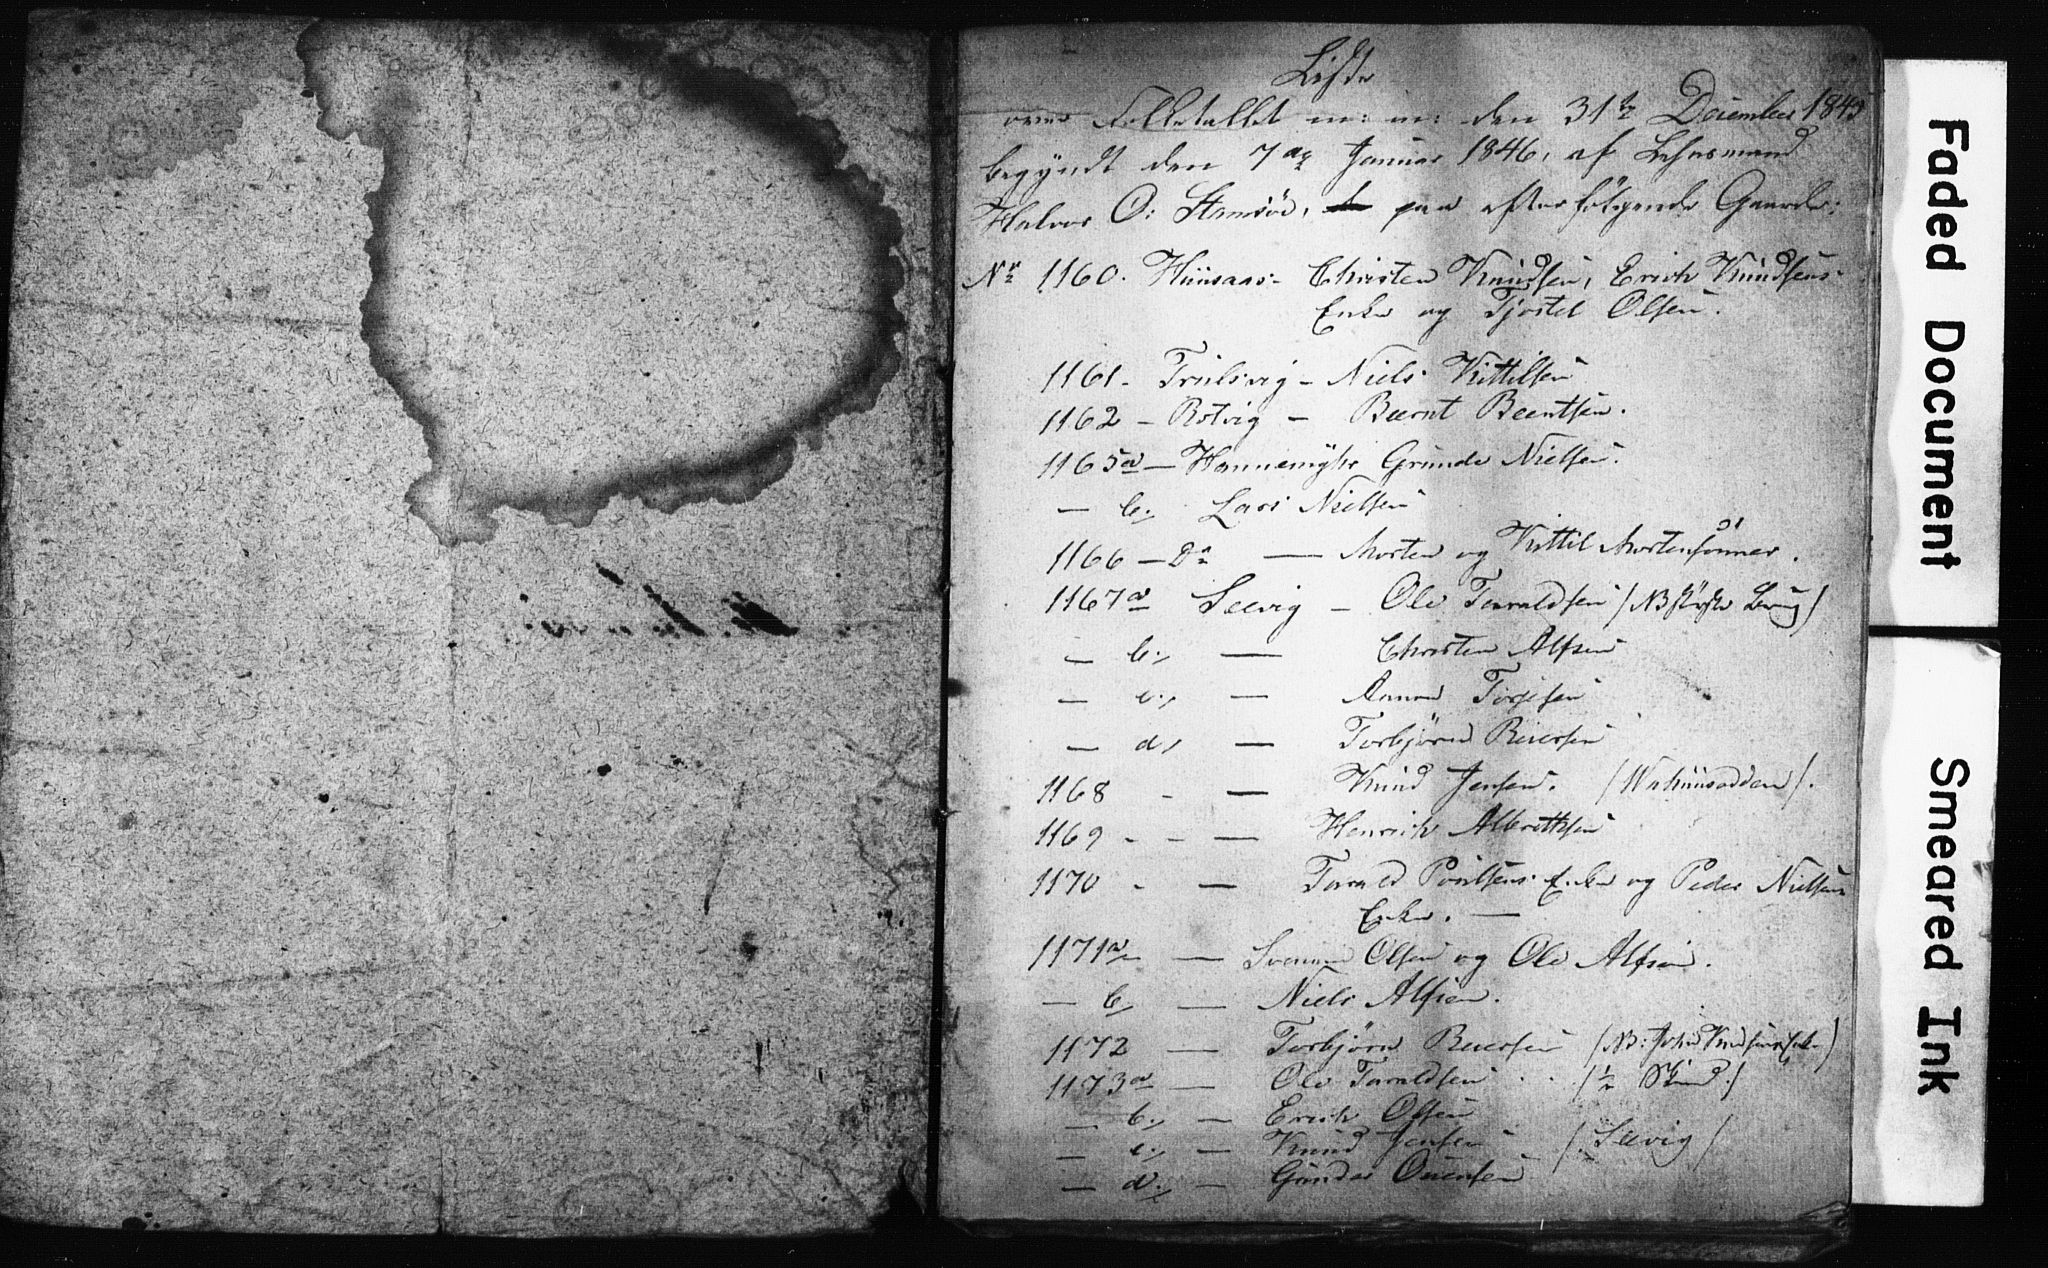 Liste
over Folketallet m: m: den 31te December 1845
begyndt den 7de Januar 1846, af Lehnsmand
Halvor O: Stamsöe, paa efterfölgende Gaarde:
No 1160. Hüüsaas - Christen Knudsen, Erich Knudsens
Enke og Tjostel Olsen.
1161 - Trülsvig - Niels Kittilsen
1162 - Rotvig - Beernt Beentsen.
1165a - Hannemÿhr Gründe Nielsen.
- b., Lars Nielsen
1166 - Do - Morten og Kittil Mortensönner.
1167a Seevig - Ole Taraldsen / NB störste Brüg /
- b., - Christen Alfsen
- c., - Anna Torjesen
- d, - Torbjörn Reiersen
1168 - - Knud Jensen.
1169 - - - Henrich Albretksen
1170 - - Tarald Poulsens Enke og Peder Nielsens
Enke. -
1171a - Svennu Olsen og Ole Alfsen.
- b, - Niels Alfsen.
1172 - Torbjörn Reiersen / NB: John Knudsens Enke /
1173a - Ole Taraldsen . . / ½ /
- b., - Erich Olsen
- c., - Knud Jensen - / Seevig /
- d., - Gunder
Faded Document
Smeared Ink